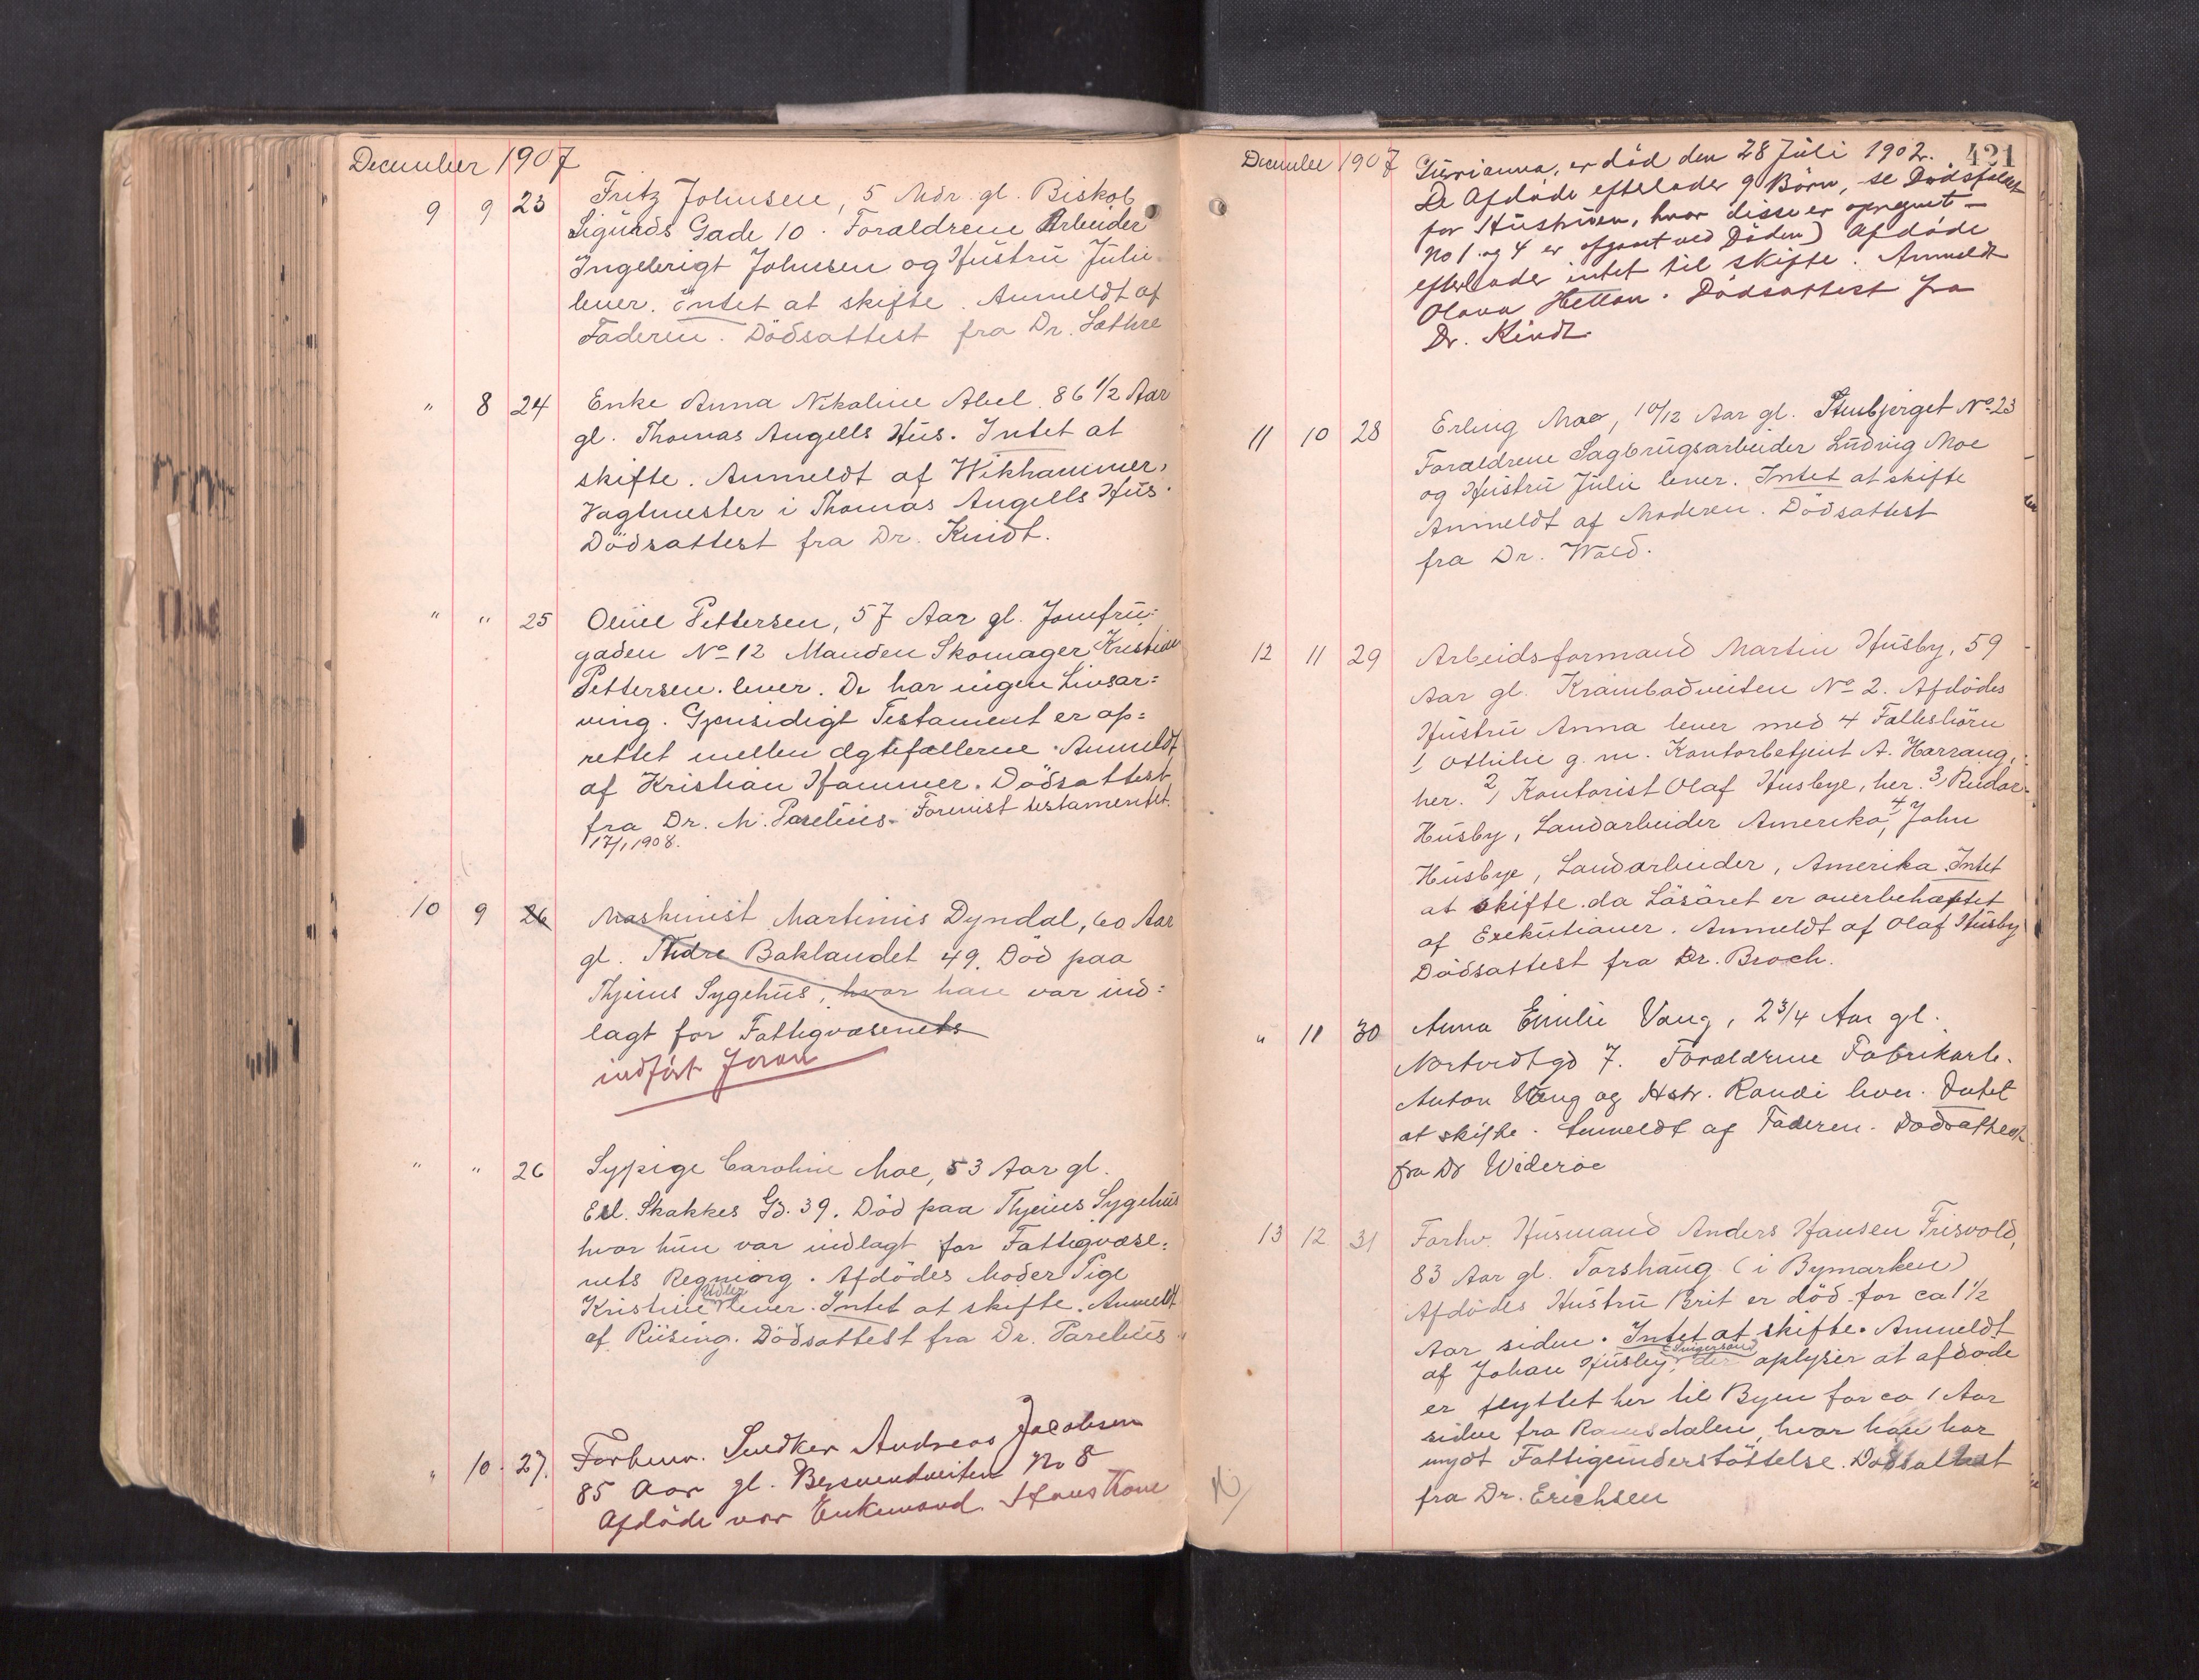 December 1907
9 9 23 Fritz Johnsen, 5 Mdr. gl. Biskob
Sigurds Gade 10. Forældrene Arbeider
Ingebrigt Johnsen og Hustru Julie
lever. Intet at skifte. Anmeldt af
Faderen. Dödsattest fra Dr. Sæthre
" 8 24 Enke Anna Nikoline Abel 86 1/2 Aar
gl. Thomas Angells Hus. Intet at
skifte. Anmeldt af Wikhammer,
Vagtmester i Thomas Angells Hus.
Dödsattest fra Dr. Kindt.
" " 25 Oline Pettersen, 57 Aar gl. Jomfru-
gaden No 12 Manden Skomager Kristian
Pettersen lever. De har ingen Livsar=
ving. Gjensidigt Testament er op=
rettet mellem Ægtefællerne. Anmeldt
af Kristian Hammer. Dödsattest
fra Dr. M. Parelius. Forevist testamentet
17/1 1908.
10 9 26 Maskinist Martinus Dyndal, 60 Aar
gl. Nedre Baklandet 49. Död paa
Thjems Sygehus, hvor han var ind=
lagt for Fattigvæsenets
indfört foran
" " 26 Sypige Caroline Moe, 53 Aar gl.
Erl. Skakkes Gd. 39. Död paa Thjems Sygehus
hvor hun var indlagt for Fattigvæse=
nets Regning. Afdödes Moder Pige
Kristine lever. Intet at skifte. Anmeldt
af Riising. Dödsattest fra Dr. Parelius
" 10 27. Forhenv. Snedker Andreas Jacobsen
85 Aar gl. Bersvendveiten No 8
Afdöde var Enkemand. Hans Kone
December 1907 421
Gurianna, er död den 28 Juli 1902.
De Afdöde efterlader 9 Börn, se Dödsfaldet
for Hustruen, hvor disse er opregnet -
No 1 og 4 er afgaaet ved Döden) Afdöde
efterlader intet til skifte. Anmeldt
Olava Hettan. Dödsattest fra
Dr. Kindt.
11 10 28 Erling Moe, 10/12 Aar gl. Stenbjerget No 23
Forældrene Sagbrugsarbeider Ludvig Moe
og Hustru Julie lever. Intet at skifte
Anmeldt af Moderen. Dödsattest
fra Dr. Wald.
12 11 29 Arbeidsformand Martin Husby, 59
Aar gl. Krambodveiten No 2. Afdödes
Hustru Anna lever med 4 Fællesbörn
1, Othilie g. m. Kontorbetjent A. Harrang,
her. 2, Kontorist Olaf Husbye, her. 3, Peder
Husby, Landarbeider Amerika, 4, John
Husbye, Landarbeider, Amerika. Intet
at skifte da Lösöret er overbehæftet
af Exekutioner. Anmeldt af Olaf Husby
Dödsattest fra Dr. Broch.
" 11 30 Anna Emilie Vang, 2 3/4 Aar gl.
Nortvedtgd 7. Forældrene Fabrikarb.
Anton Vang og Hstr. Randi lever. Intet
at skifte. Anmeldt af Faderen. Dødsattest
fra Dr Wideröe
13 12 31 Forhv. Husmand Anders Hansen Frisvold,
83 Aar gl. Torshaug (i Bymarken)
Afdödes Hustru Brit er död for ca 1 1/2
Aar siden. Intet at skifte. Anmeldt
Svigersønd
af Johan Husby, der oplyser at afdöde
er flyttet her til Byen for ca 1 Aar
siden fra Romsdalen, hvor han har
nydt Fattigunderstöttelse. Dödsattest
fra Dr. Erichsen